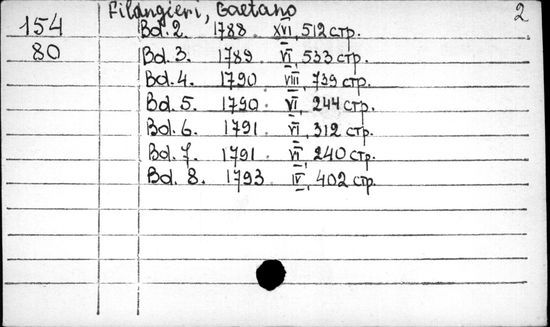 Filangieri, Gaetano 2
154 Bd. 2. 1788. XVI, 512 стр.
80 Bd. 3. 1789. VI, 533 стр.
Bd. 4. 1790. VIII, 739 стр.
Bd. 5. 1790. VI, 244 стр.
Bd. 6. 1791. VI, 312 стр.
Bd. 7. 1791. VI, 240 стр.
Bd. 8. 1793. IV, 402 стр.